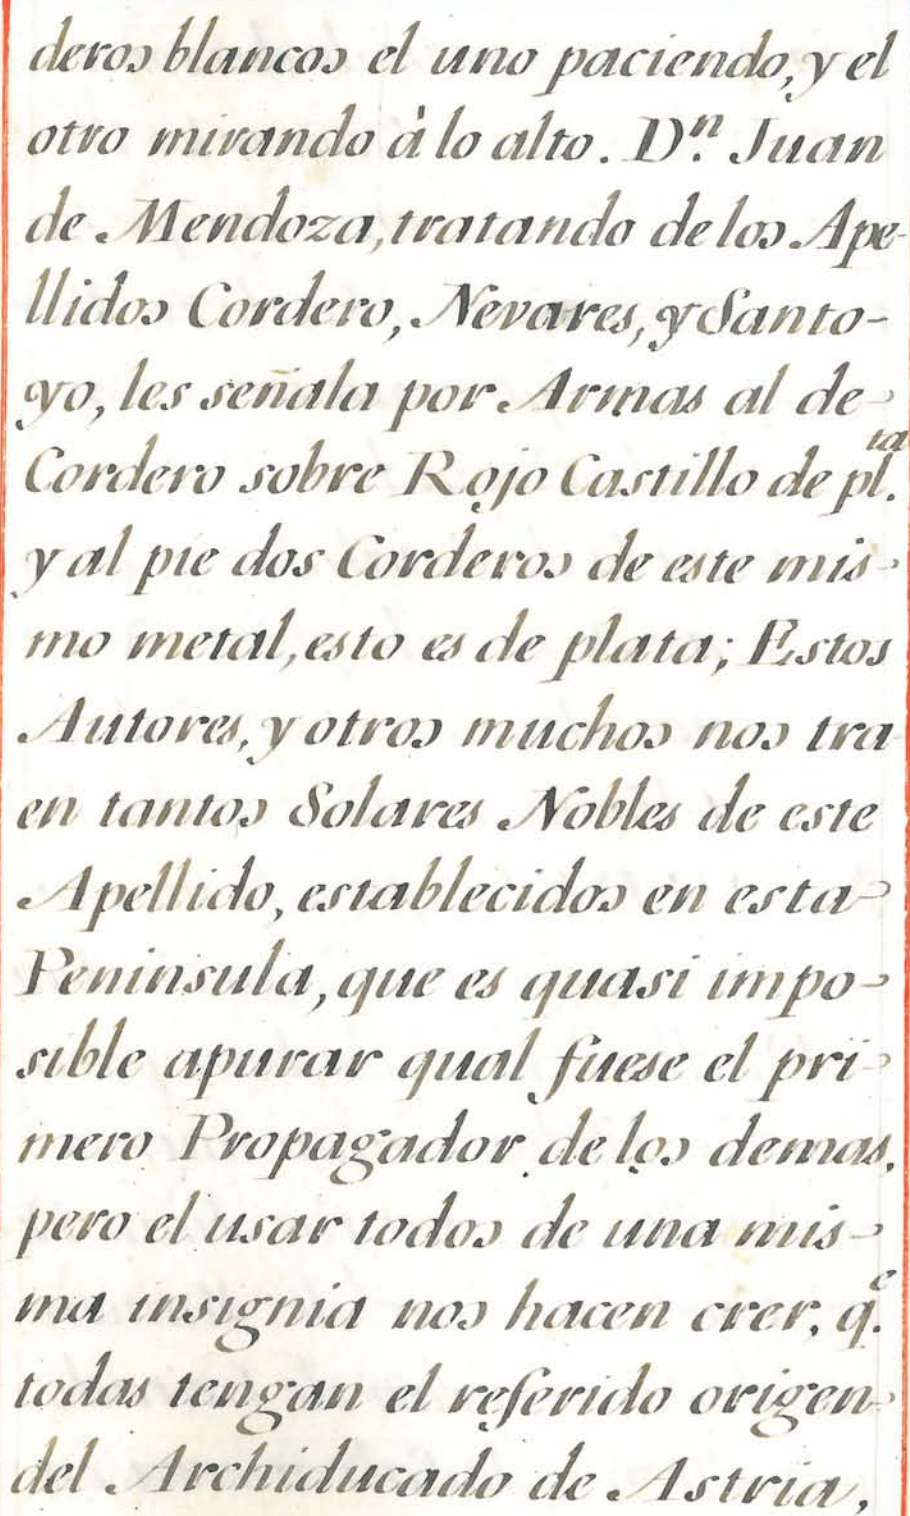 deros blancos el uno paciendo, y el
otro mirando à lo alto. Dⁿ. Juan
de Mendoza, tratando de los Ape-
llidos Cordero, Nevares, y Santo-
yo, les señala por Armas al de-
Cordero sobre Rojo Castillo de pl.ᵗᵃ
y al pie dos Corderos de este mis-
mo metal, esto es de plata; Estos
Autores, y otros muchos nos tra
en tantos Solares Nobles de este
Apellido, establecidos en esta-
Peninsula, que es quasi impo-
sible apurar qual fuese el pri-
mero Propagador de los demas,
pero el usar todos de una mis-
ma insignia nos hacen crer, q.ᵉ
todas tengan el referido origen-
del Archiducado de Astria,